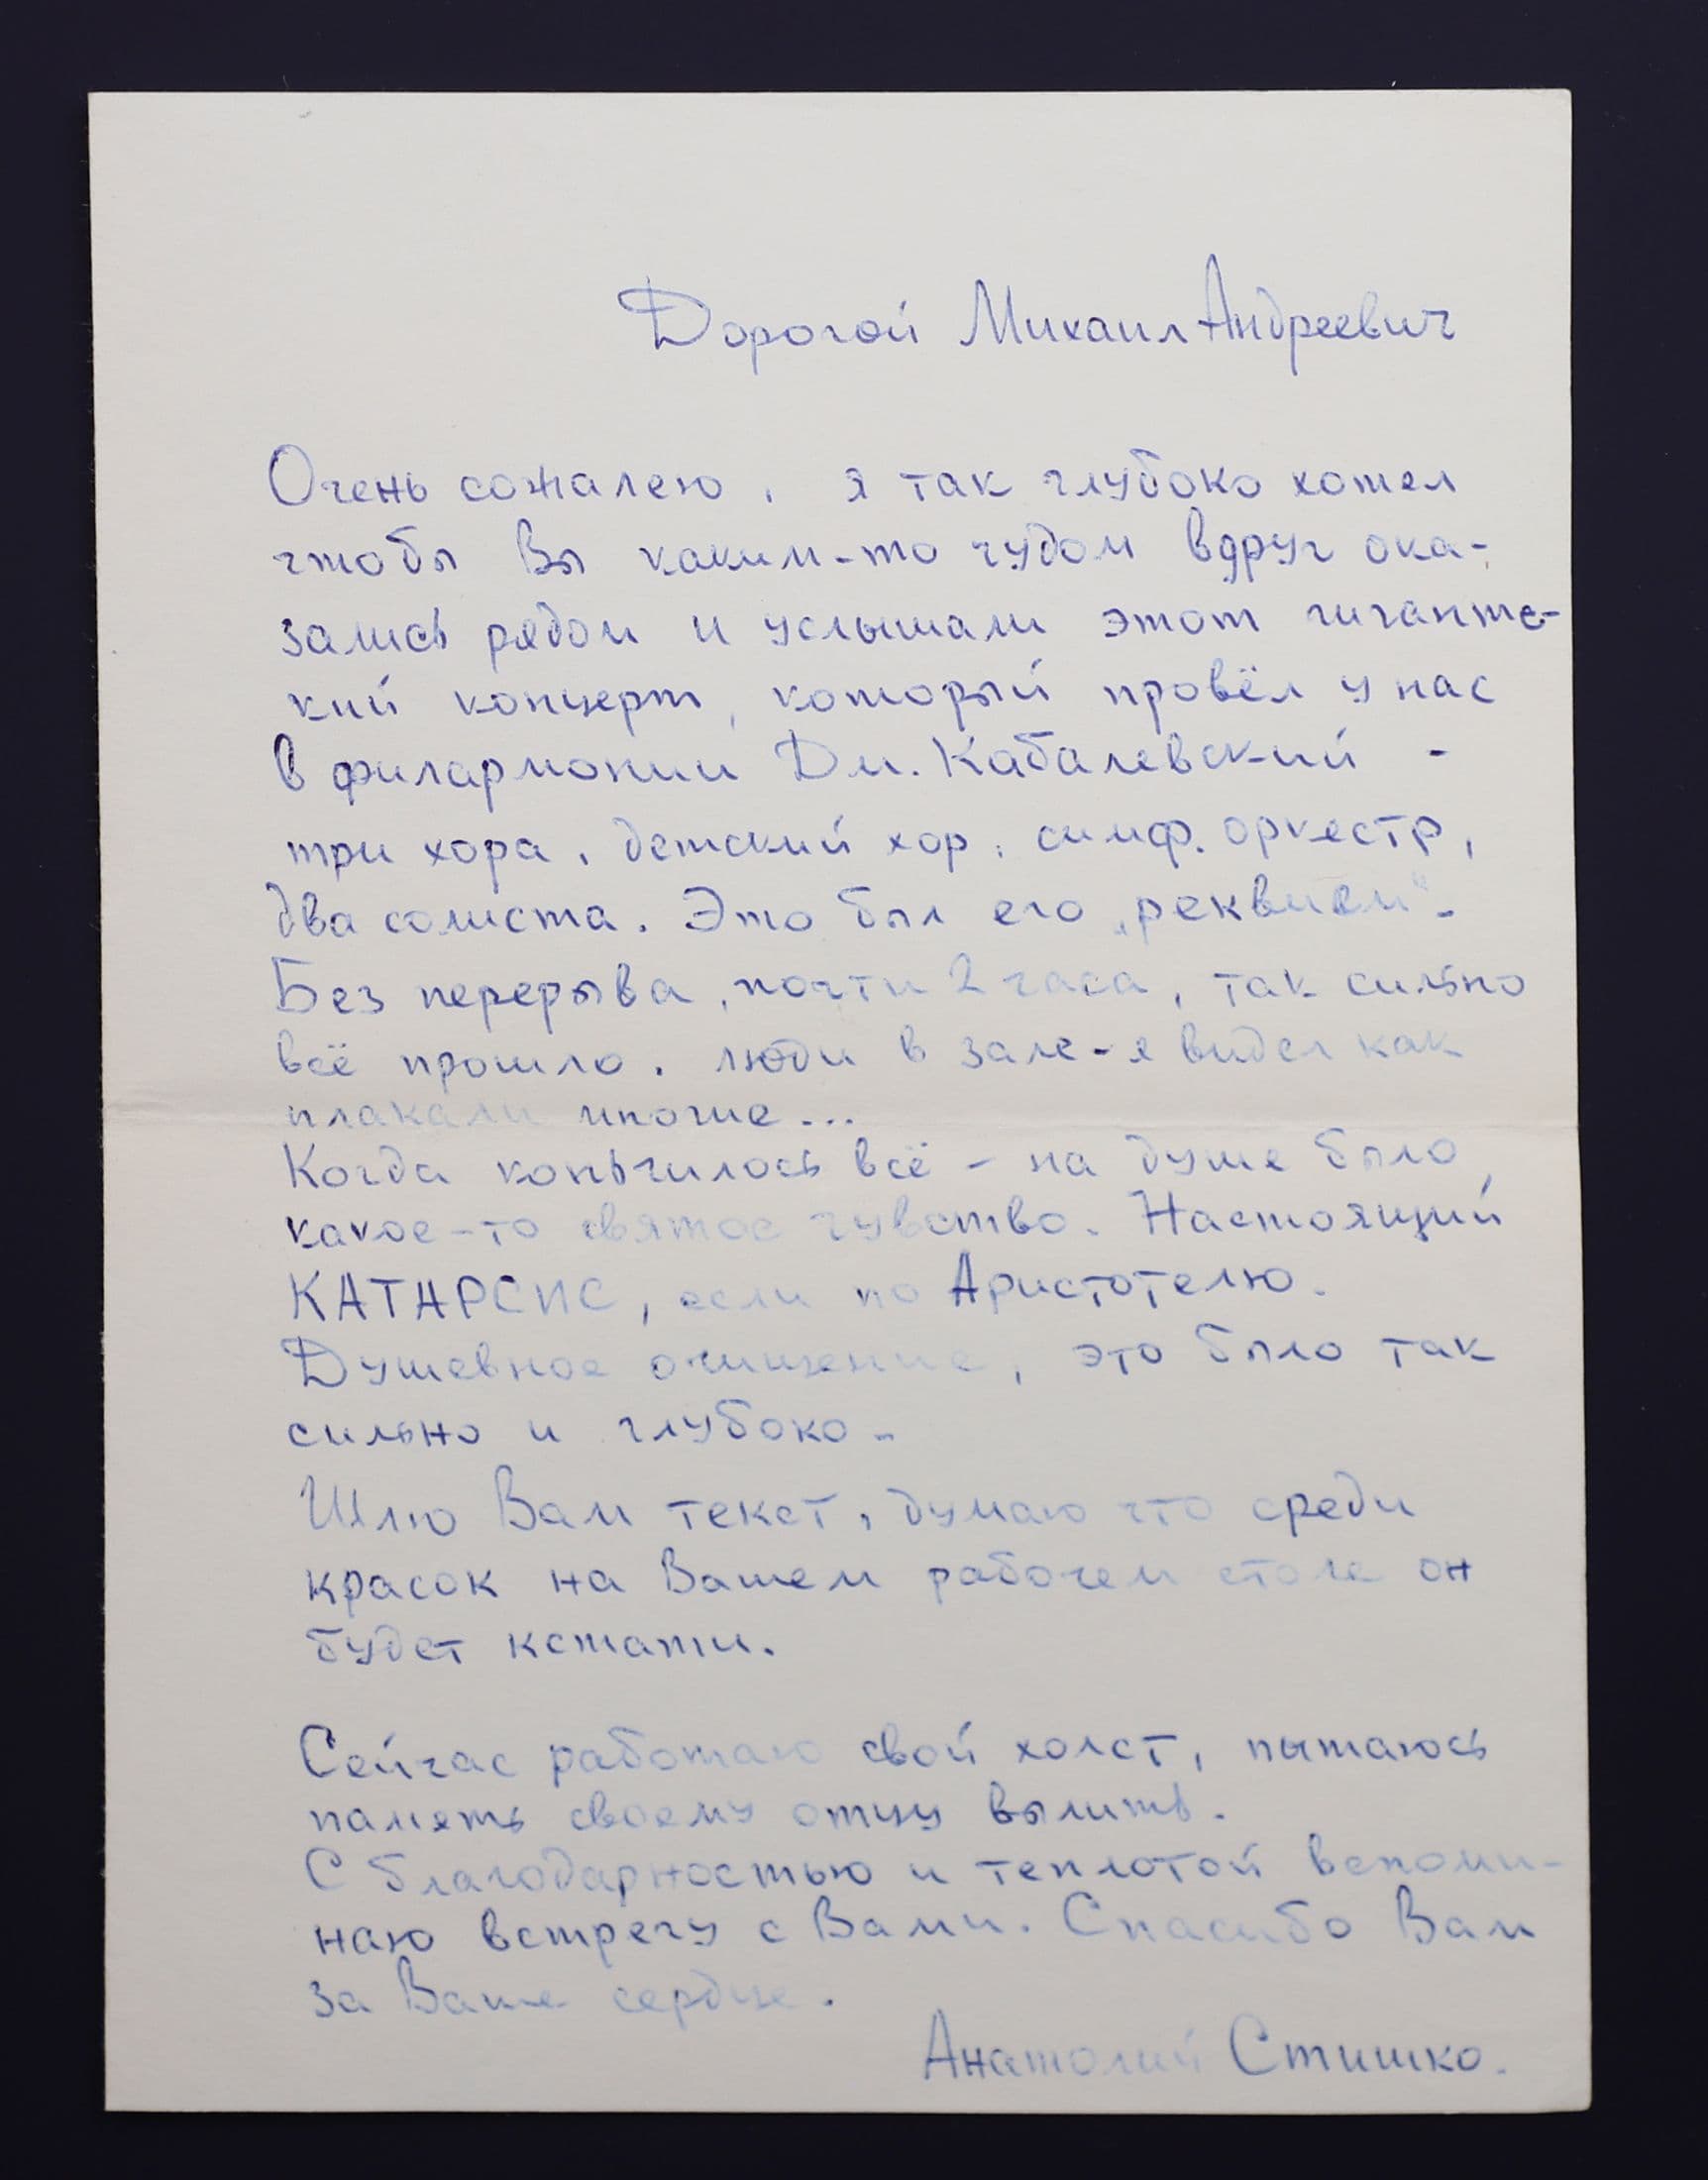 Дорогой Михаил Андреевич
Очень сожалею, я так глубоко хотел
чтобы Вы каким-то чудом вдруг ока-
зались рядом и услышали этот гигантс-
кий концерт, который провёл у нас
в филармонии Дм. Кабалевский -
три хора, детский хор, симф. оркестр,
два солиста. Это был его „реквием".
Без перерыва, почти 2 часа, так сильно
всё прошло. люди в зале - я видел как
плакали многие...
Когда коньчилось всё - на душе было
какое-то святое чувство. Настоящий
КАТАРСИС, если по Аристотелю.
Душевное очищение, это было так
сильно и глубоко.
Шлю Вам текст, думаю что среди
красок на Вашем рабочем столе он
будет кстати.
Сейчас работаю свой холст, пытаюсь
память своему отцу вылить.
С благодарностью и теплотой вспоми-
наю встречу с Вами. Спасибо Вам
за Ваше сердце.
Анатолий Стишко.